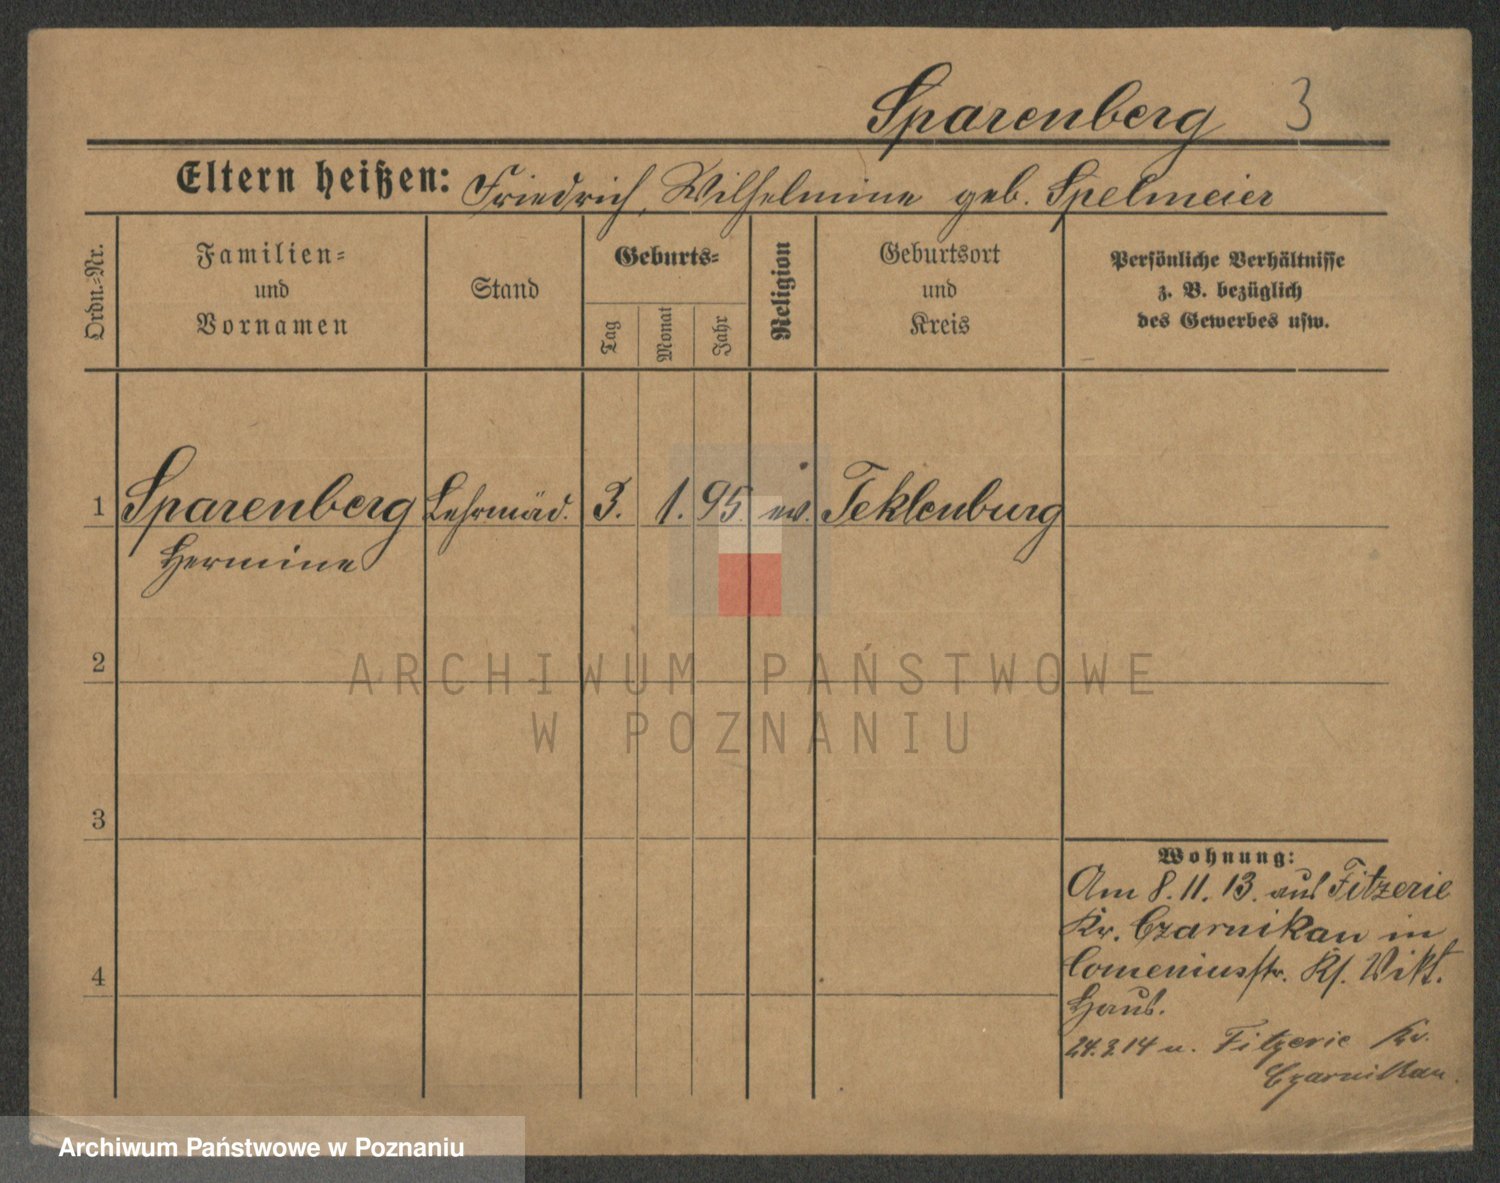 Sparenberg 3
Eltern heißen: Friedrich, Wilhelmine geb. Spelmeier
Ordn.-Nr.
Familien-
und
Vornamen
Stand
Geburts-
Tag
Monat
Jahr
Religion
Geburtsort
und
Kreis
Persönliche Verhältnisse
z. B. bezüglich
des Gewerbes usw.
1 Sparenberg Lehrmäd. 3. 1. 95. ev. Teklenburg
Hermine
2
ARCHIWUM PAŃSTWOWE
W POZNANIU
3
Wohnung:
Am 8. 11. 13. aus Fitzerie
Kr. Czarnikau in
Comeniusstr. Ks. Vikt.
Haus.
4
24.3.14 n. Fitzerie Kr.
Czarnikau.
Archiwum Państwowe w Poznaniu